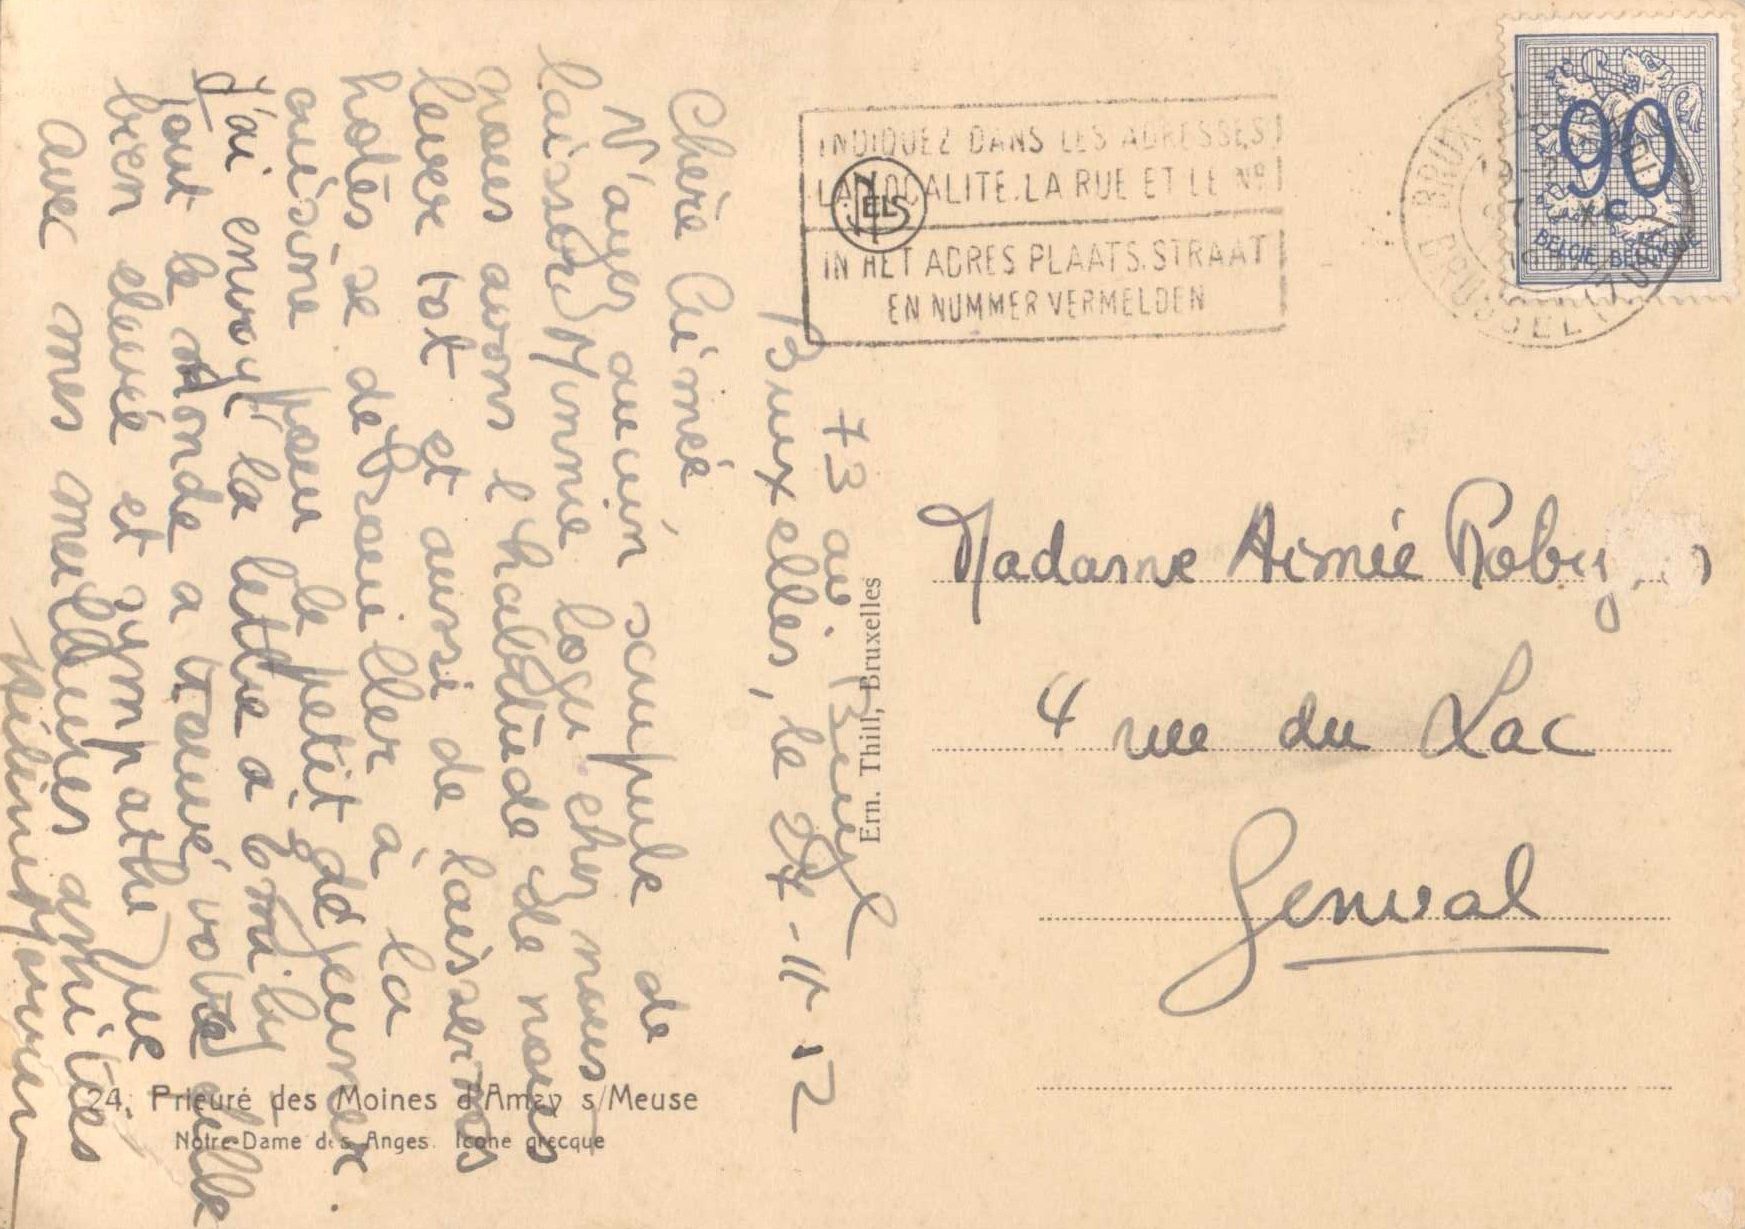 73 av. Buyl
Bruxelles, le 27-11-52
Chère Aimée
N'ayez aucun scrupule de
laisser Mimie loger chez nous
nous avons l'habitude de nous
lever tot et aussi de laisser nos
hotes se débrouiller à la
cuisine pour le petit déjeuner.
j'ai envoyé la lettre à Emily
Tout le monde a trouvé votre fille
bien elevé et sympathique
avec mes meilleures amitiés
INDIQUEZ DANS LES ADRESSES
LA LOCALITE. LA RUE ET LE No
IN HET ADRES PLAATS. STRAAT
EN NUMMER VERMELDEN
NELS
90 c
BELGIE BELGIQUE
Ern. Thill, Bruxelles
Madame Aimée
4 rue du Lac
Genval
24. Prieuré des Moines d'Amay s/Meuse
Notre-Dame des Anges. Icone grecque